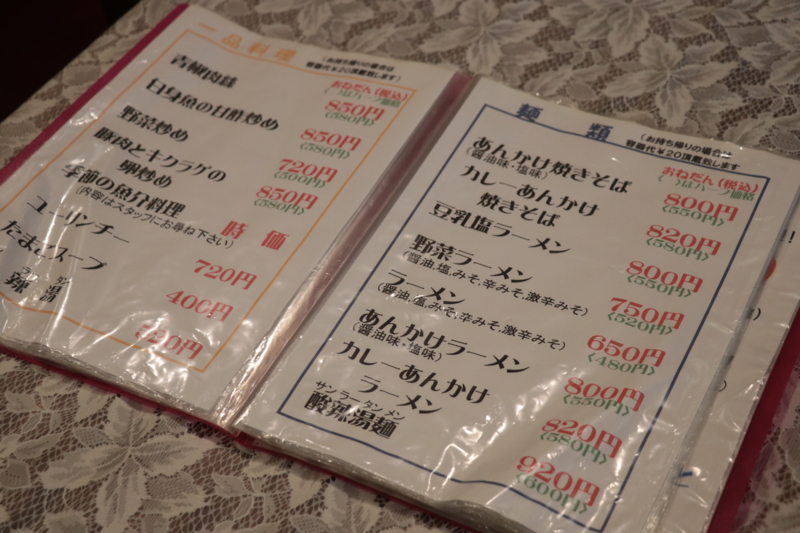 一品料理
(お持ち帰りの場合は
容器代￥20頂戴致します)
おねだん(税込)
〈 〉はハーフ価格
青椒肉絲 850円
〈580円〉
白身魚の甘酢炒め 850円
〈580円〉
野菜炒め 720円
〈500円〉
豚肉とキクラゲの
卵炒め 850円
〈580円〉
季節の魚介料理 時価
(内容はスタッフにお尋ね下さい)
ユーリンチー 720円
たまごスープ 400円
520円
麺類
(お持ち帰りの場合は
容器代￥20頂戴致します
おねだん(税込)
〈 〉はハーフ価格
あんかけ焼きそば 800円
(醤油味・塩味) 〈550円〉
カレーあんかけ
焼きそば 820円
〈580円〉
豆乳塩ラーメン 800円
〈550円〉
野菜ラーメン 750円
(醤油,塩,みそ,辛みそ,激辛みそ) 〈520円〉
ラーメン 650円
(醤油,塩,みそ,辛みそ,激辛みそ) 〈480円〉
あんかけラーメン 800円
(醤油味・塩味) 〈550円〉
カレーあんかけ
ラーメン 820円
〈580円〉
サンラータンメン
酸辣湯麺 920円
〈600円〉